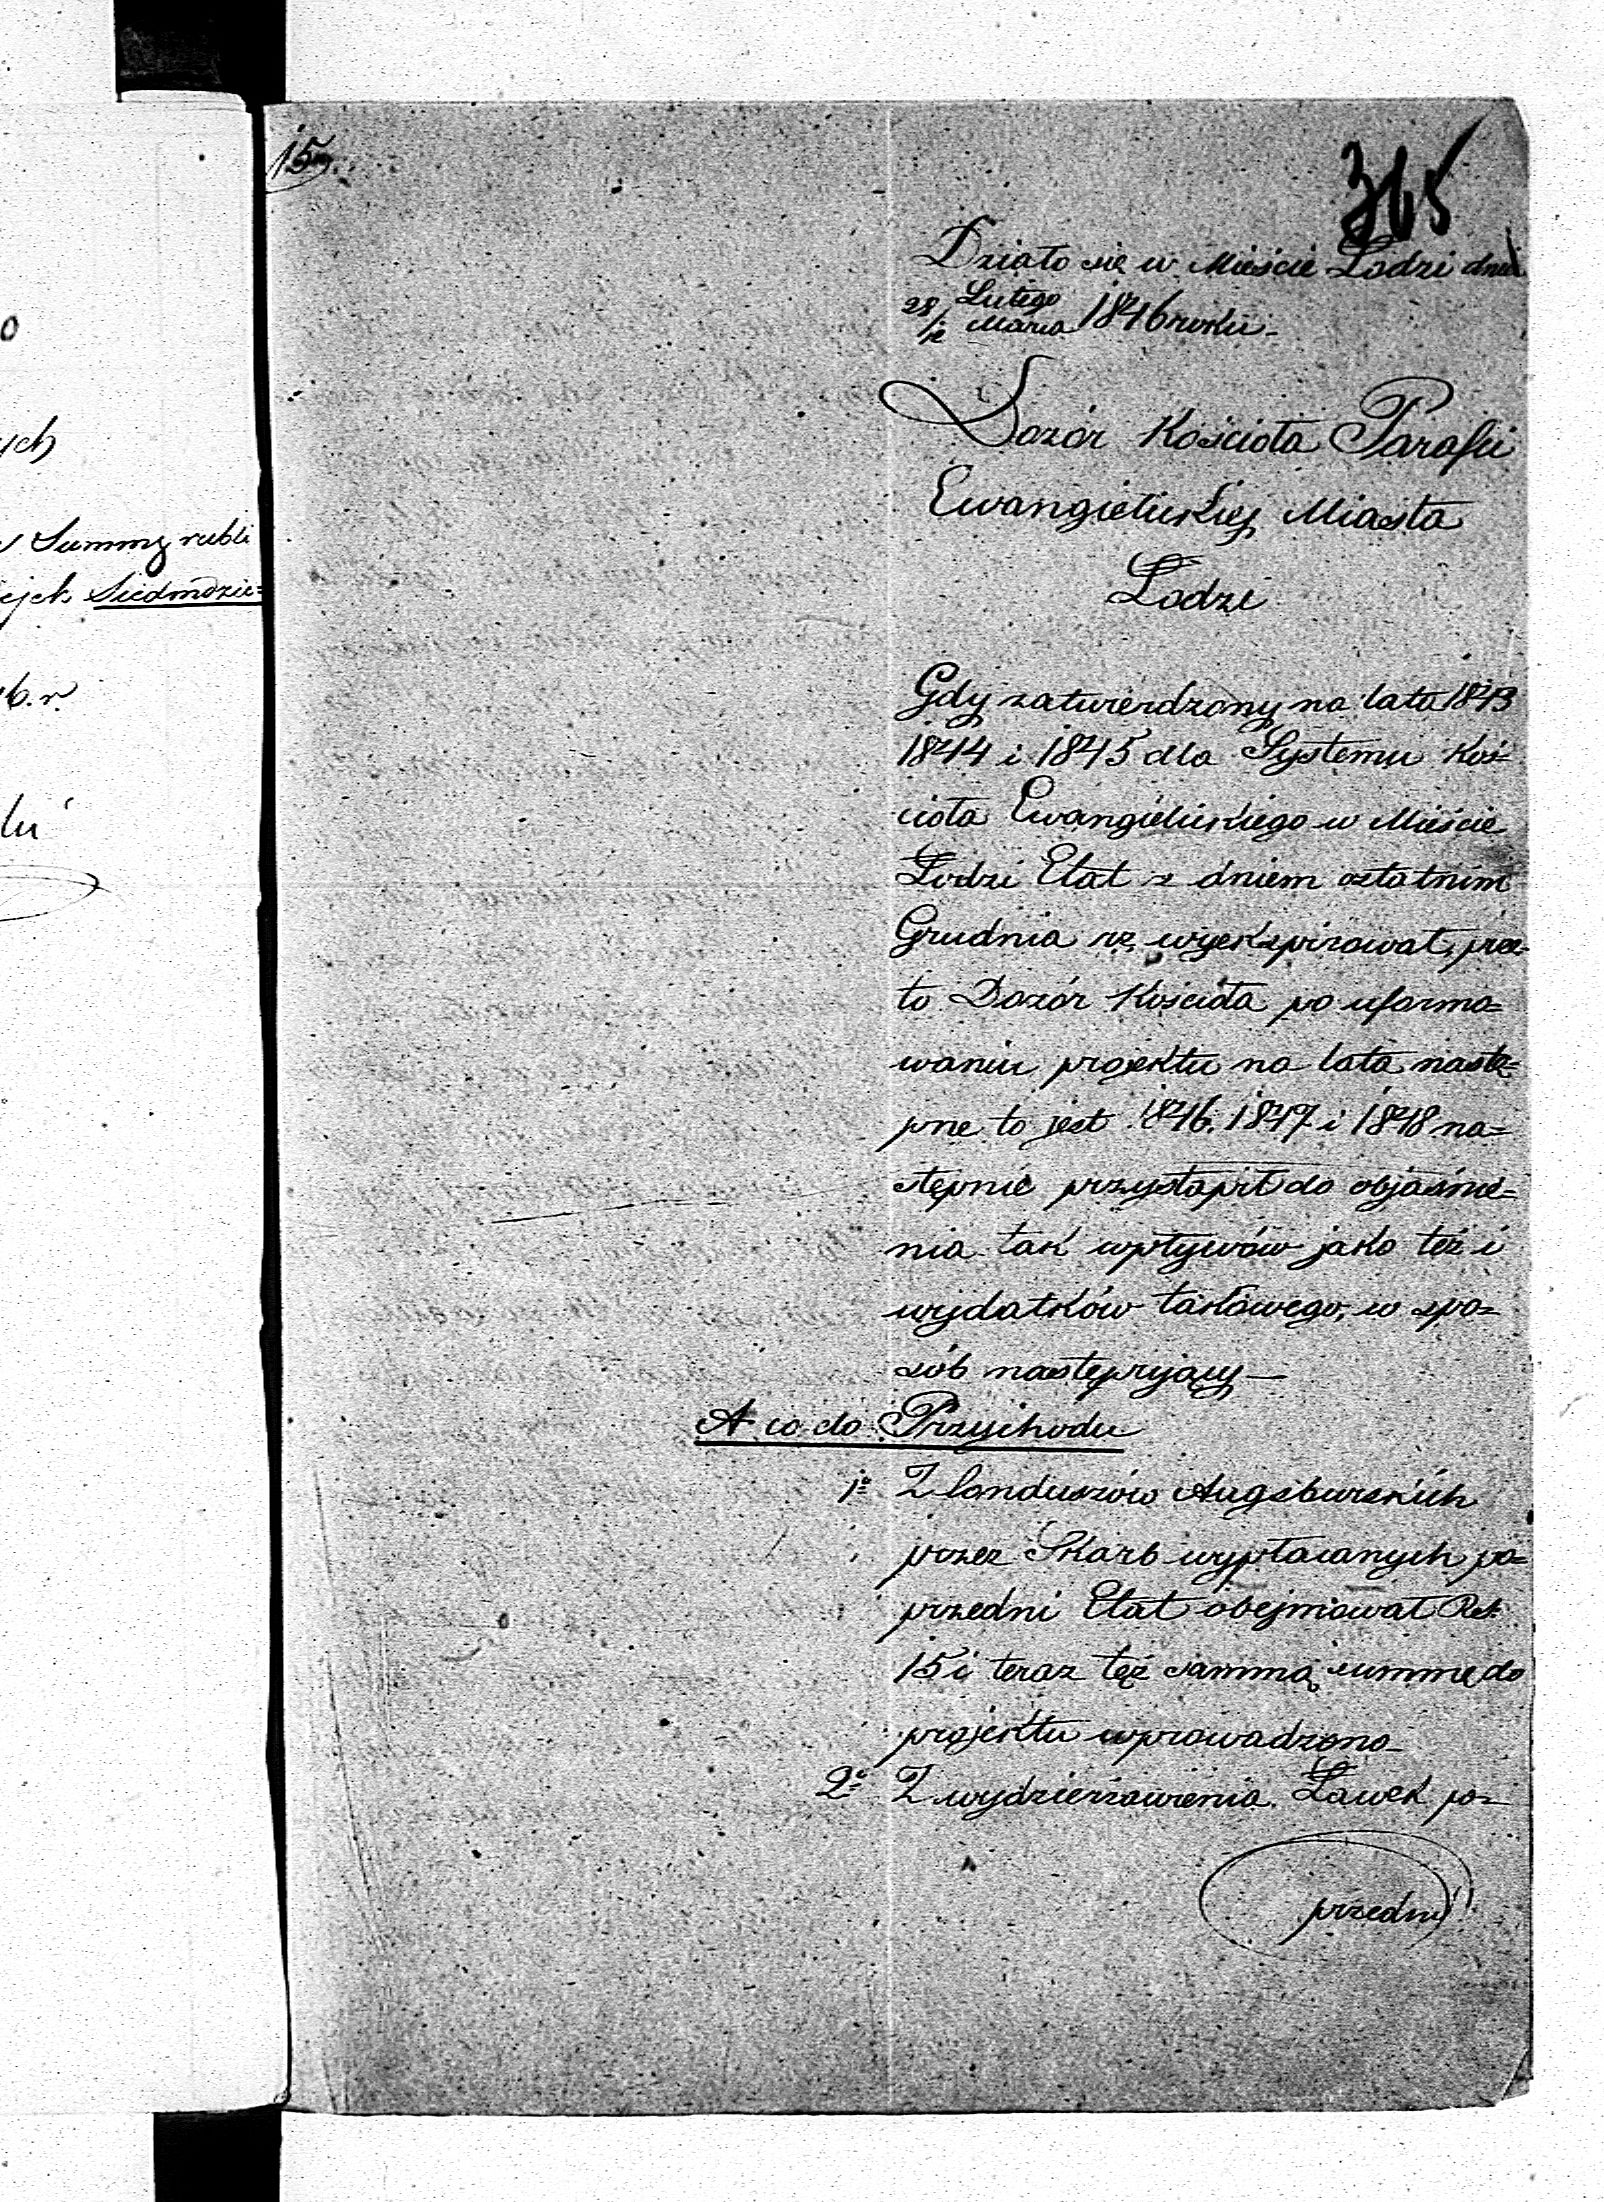 15
365
Działo się w Mieście Łodzi dnia
28/12 Lutego/Marca 1846 roku
Dozór Kościoła Parafii
Ewangielickiej Miasta
Łodzi
Gdy zatwierdzony na lata 1843
1844 i 1845 dla Systemu Koś=
cioła Ewangielickiego w Mieście
Łodzi Etat z dniem ostatnim
Grudnia rz. wyekspirował, prze=
to Dozór Kościoła po uformo=
waniu projektu na lata nastę=
pne to jest 1846. 1847 i 1848 na=
stępnie przystąpił do objaśnie=
nia tak wpływów jako też i
wydatków takowego, w spo=
sób następujący—
A co do Przychodu
1o Z Canduszów Augsburskich
przez Skarb wypłacanych po=
przedni Etat obejmował Rs.
15 i teraz też sammą summę do
projektu wprowadzono—
2o Z wydzierżawienia Ławek po=
przedni
ych
Summę rubli
ejek Siedmdzie=
6. r.